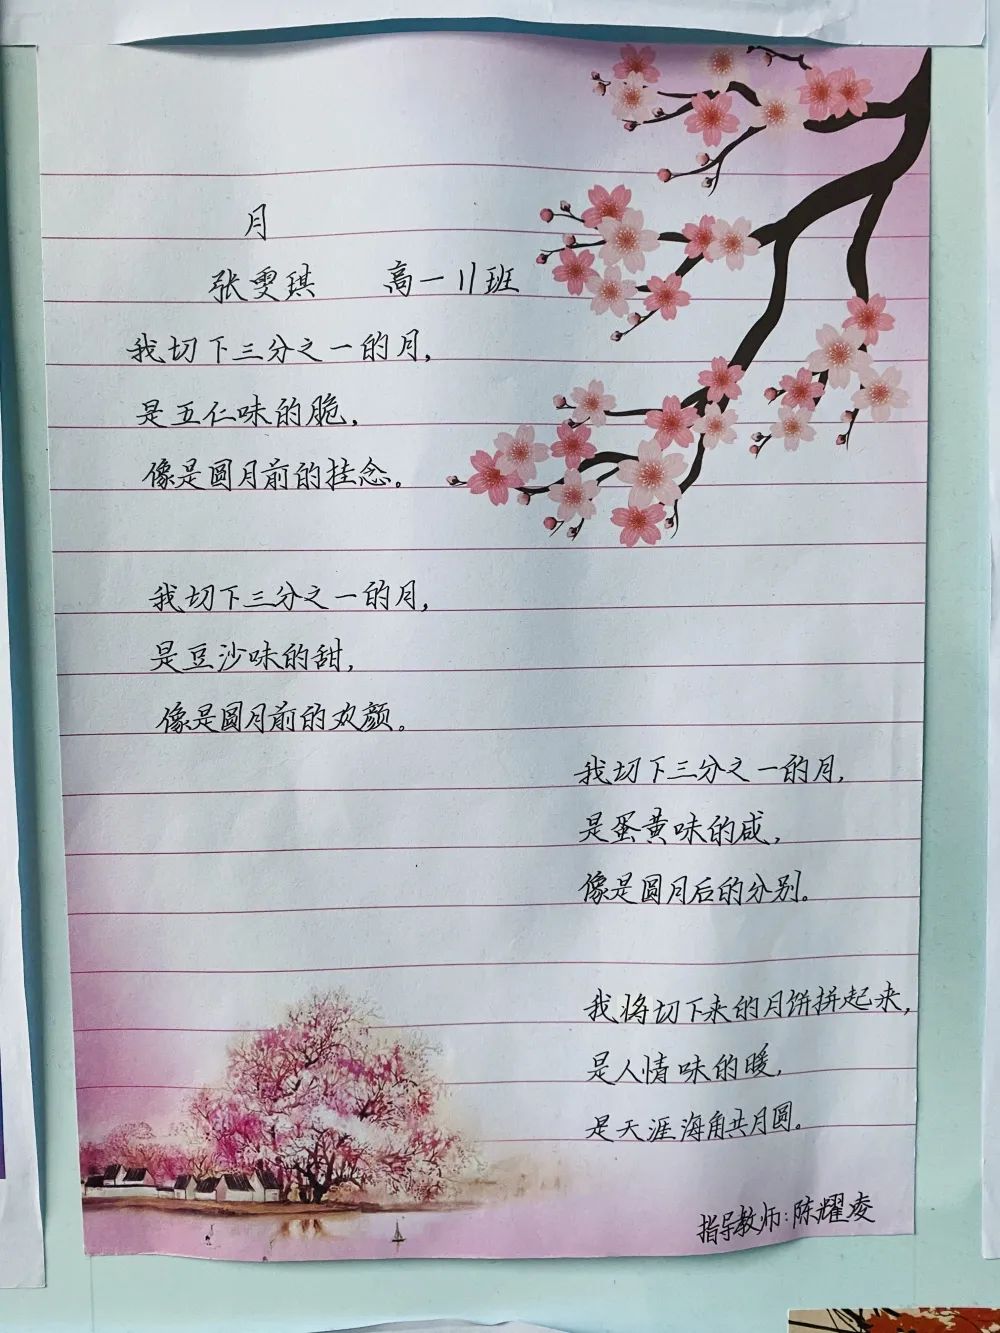 月
张雯琪 高一11班
我切下三分之一的月,
是五仁味的脆,
像是圆月前的挂念。
我切下三分之一的月,
是豆沙味的甜,
像是圆月前的欢颜。
我切下三分之一的月,
是蛋黄味的咸,
像是圆月后的分别。
我将切下来的月饼拼起来,
是人情味的暖,
是天涯海角共月圆。
指导教师:陈耀凌